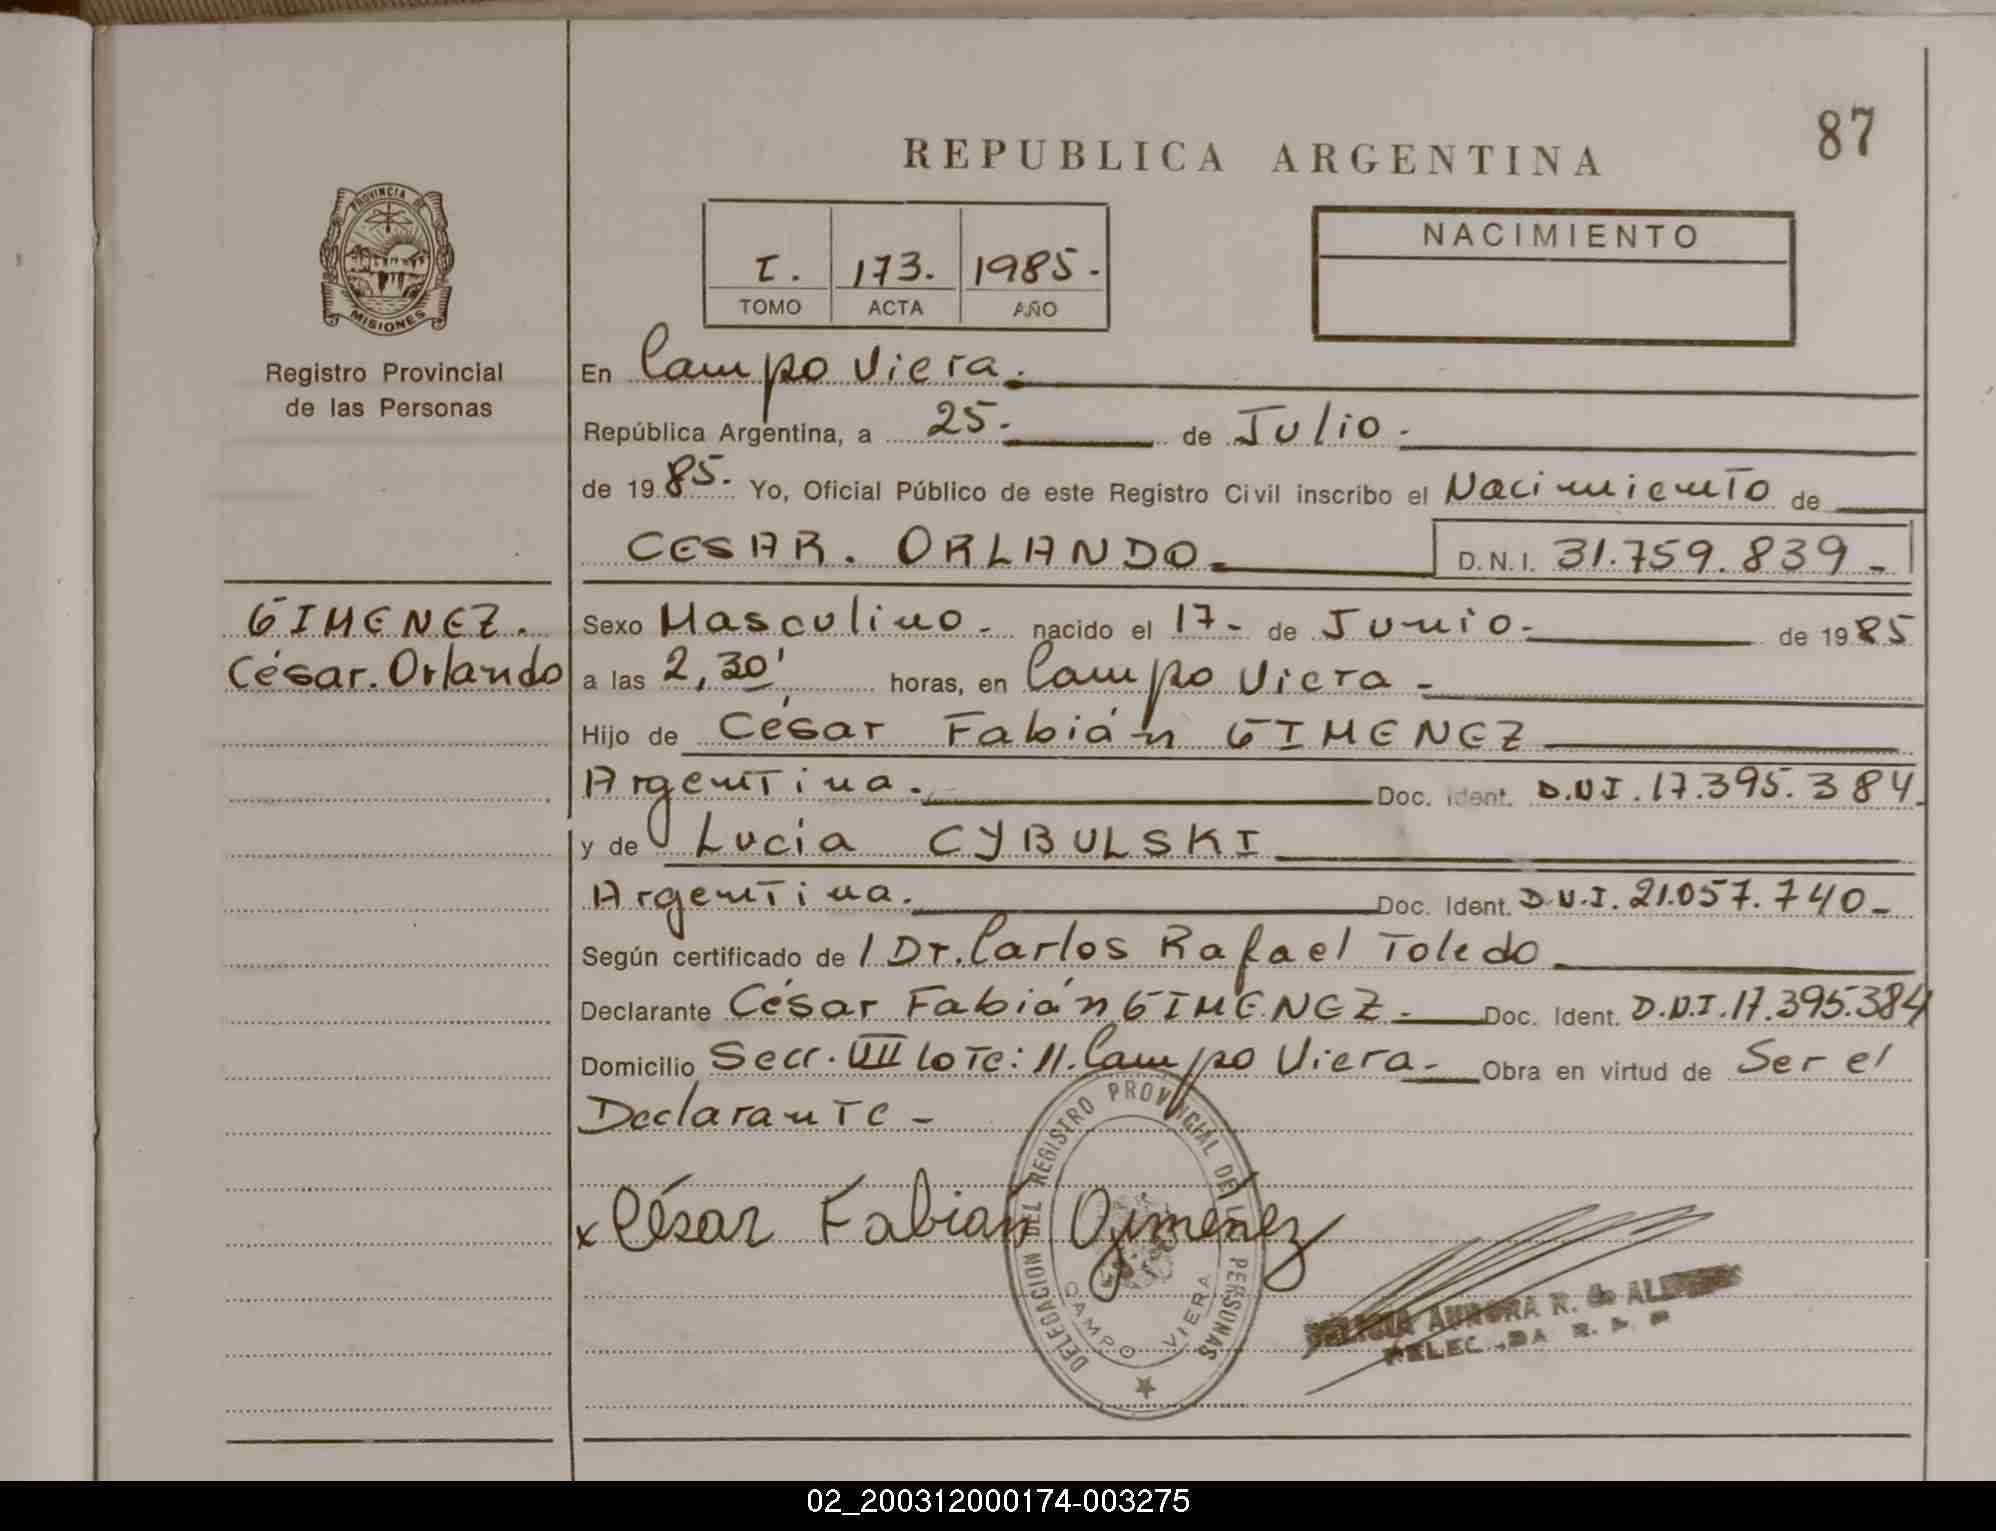 87
REPUBLICA ARGENTINA
PROVINCIA DE
MISIONES
Registro Provincial
de las Personas
I. 173. 1985.-
TOMO ACTA AÑO
NACIMIENTO
En Campo Viera.
República Argentina, a 25.- de Julio.-
de 1985.- Yo, Oficial Público de este Registro Civil inscribo el Nacimiento de
CESAR. ORLANDO.- D.N.I. 31.759.839-
GIMENEZ.
César. Orlando
Sexo Masculino.- nacido el 17- de Junio.- de 1985
a las 2,30' horas, en Campo Viera-
Hijo de César Fabián GIMENEZ
Argentina. Doc. Ident. D.N.I. 17.395.384.
y de Lucia CYBULSKI
Argentina. Doc. Ident. D.N.I. 21.057.740-
Según certificado de / Dr. Carlos Rafael Toledo
Declarante César Fabián GIMENEZ.- Doc. Ident. D.N.I. 17.395.384
Domicilio Secc. VII Lote: 11. Campo Viera.- Obra en virtud de Ser el
Declarante-
x César Fabián Gimenez
DELEGACION DEL REGISTRO PROVINCIAL DE LAS PERSONAS
CAMPO VIERA
AURORA R. de
02_200312000174-003275